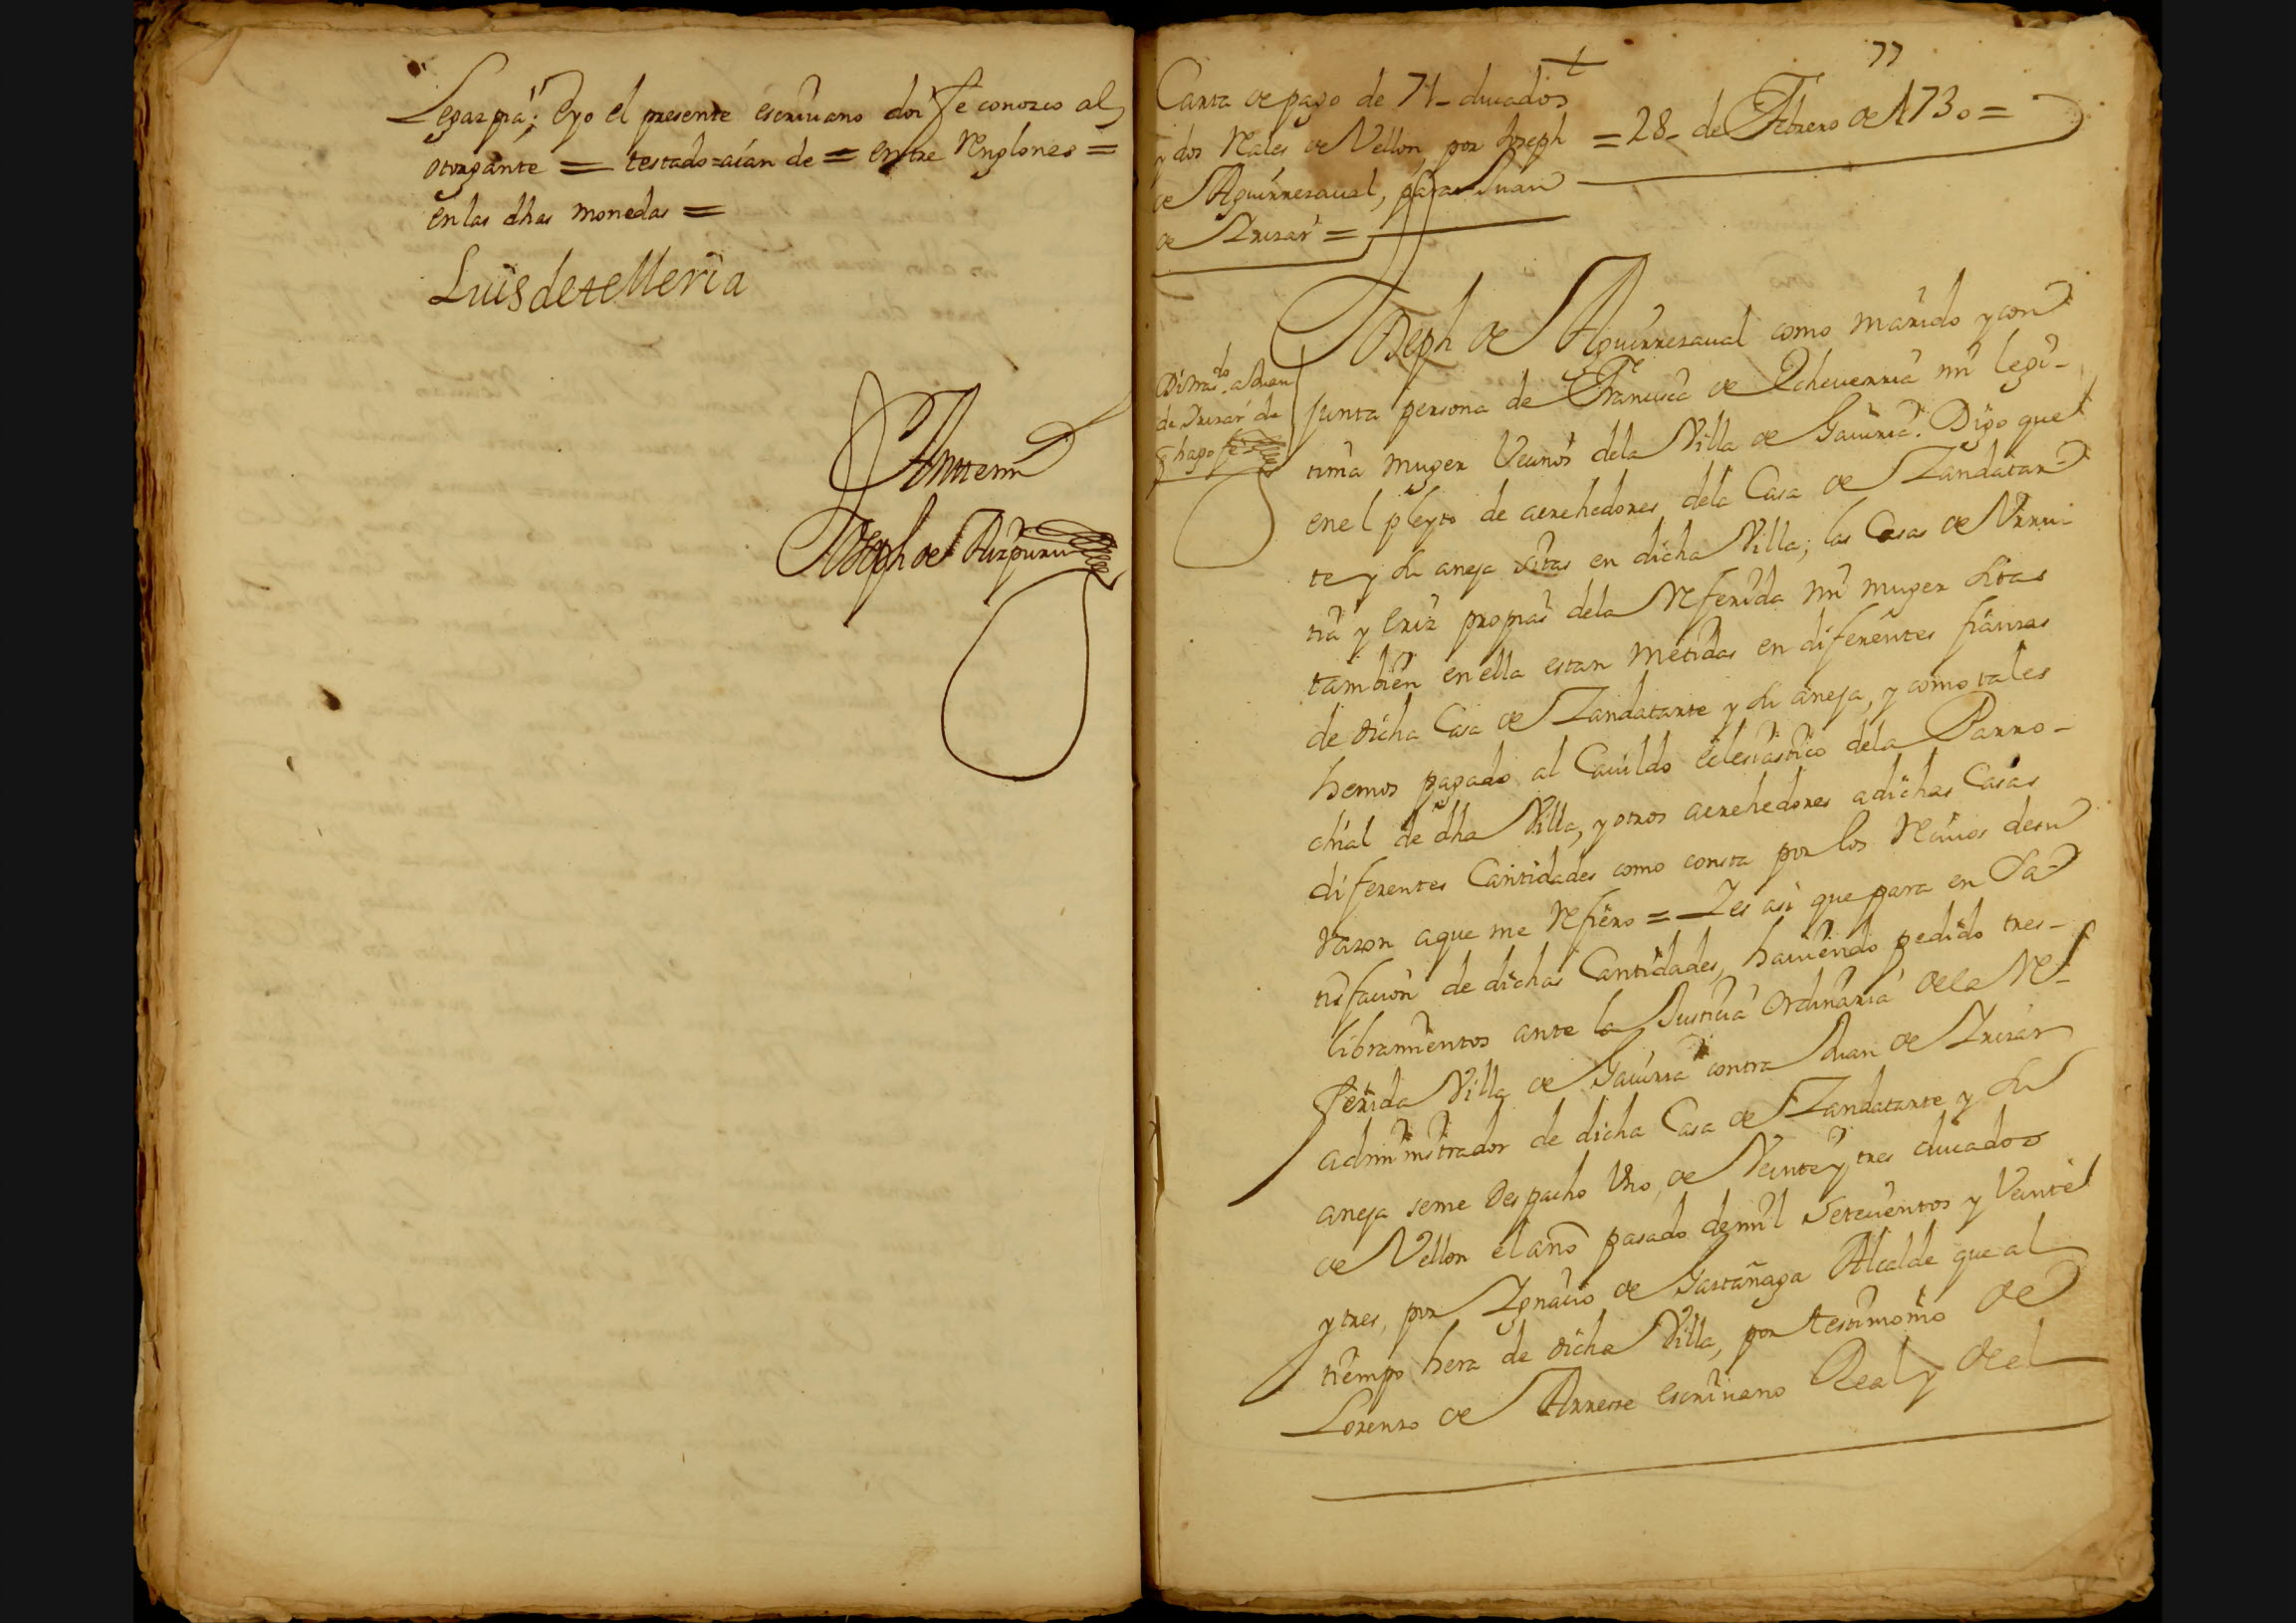 Legazpia; Eyo el presente escriuano doi fe conozco al
otorgante = testado = aian de = entre renglones =
en las dhas monedas =
Luis de telleria
Antemi
Joseph de Aizpuru
77
Carta de pago de 71 ducados
y dos reales de Vellon, por Joseph
de Aguirrezaual, para Juan
de Irizar =
= 28 de Febrero de 1730 =
Di traslo. a Juan
de Irizar de
q hago fe
Joseph de Aguirrezaual como marido y con
junta persona de Franca de Echeuerria mi legi-
tima muger Vecinos dela Villa de Gauiria. Digo que
en el pleyto de acrehedores dela Casa de Zandatar
te y su aneja sitas en dicha Villa; las Casas de Vrru-
tia y Eriz propias dela referida mi muger sitas
tambien en ella estan metidas en diferentes fianzas
de dicha Casa de Zandatarte y su aneja, y como tales
hemos pagado al Cauildo eclesiastico dela Parro-
chial de dha Villa, y otros acrehedores a dichas Casas
diferentes Cantidades como consta por los reciuos de su
razon a que me refiero = Y es asi que para en Sa-
tisfacion de dichas Cantidades, hauiendo pedido tres
libramientos ante la Justicia Ordinaria de la Re-
ferida Villa de Gauiria contra Juan de Irizar
administrador de dicha Casa de Zandatarte y su
aneja seme Despacho Vno, de Veinte y tres ducados
de Vellon el año pasado de mil Setecientos y Veinte
y tres, por Ignacio de Gastañaga Alcalde que al
tiempo hera de dicha Villa, por testimonio de
Lorenzo de Arrese escriuano Real y del